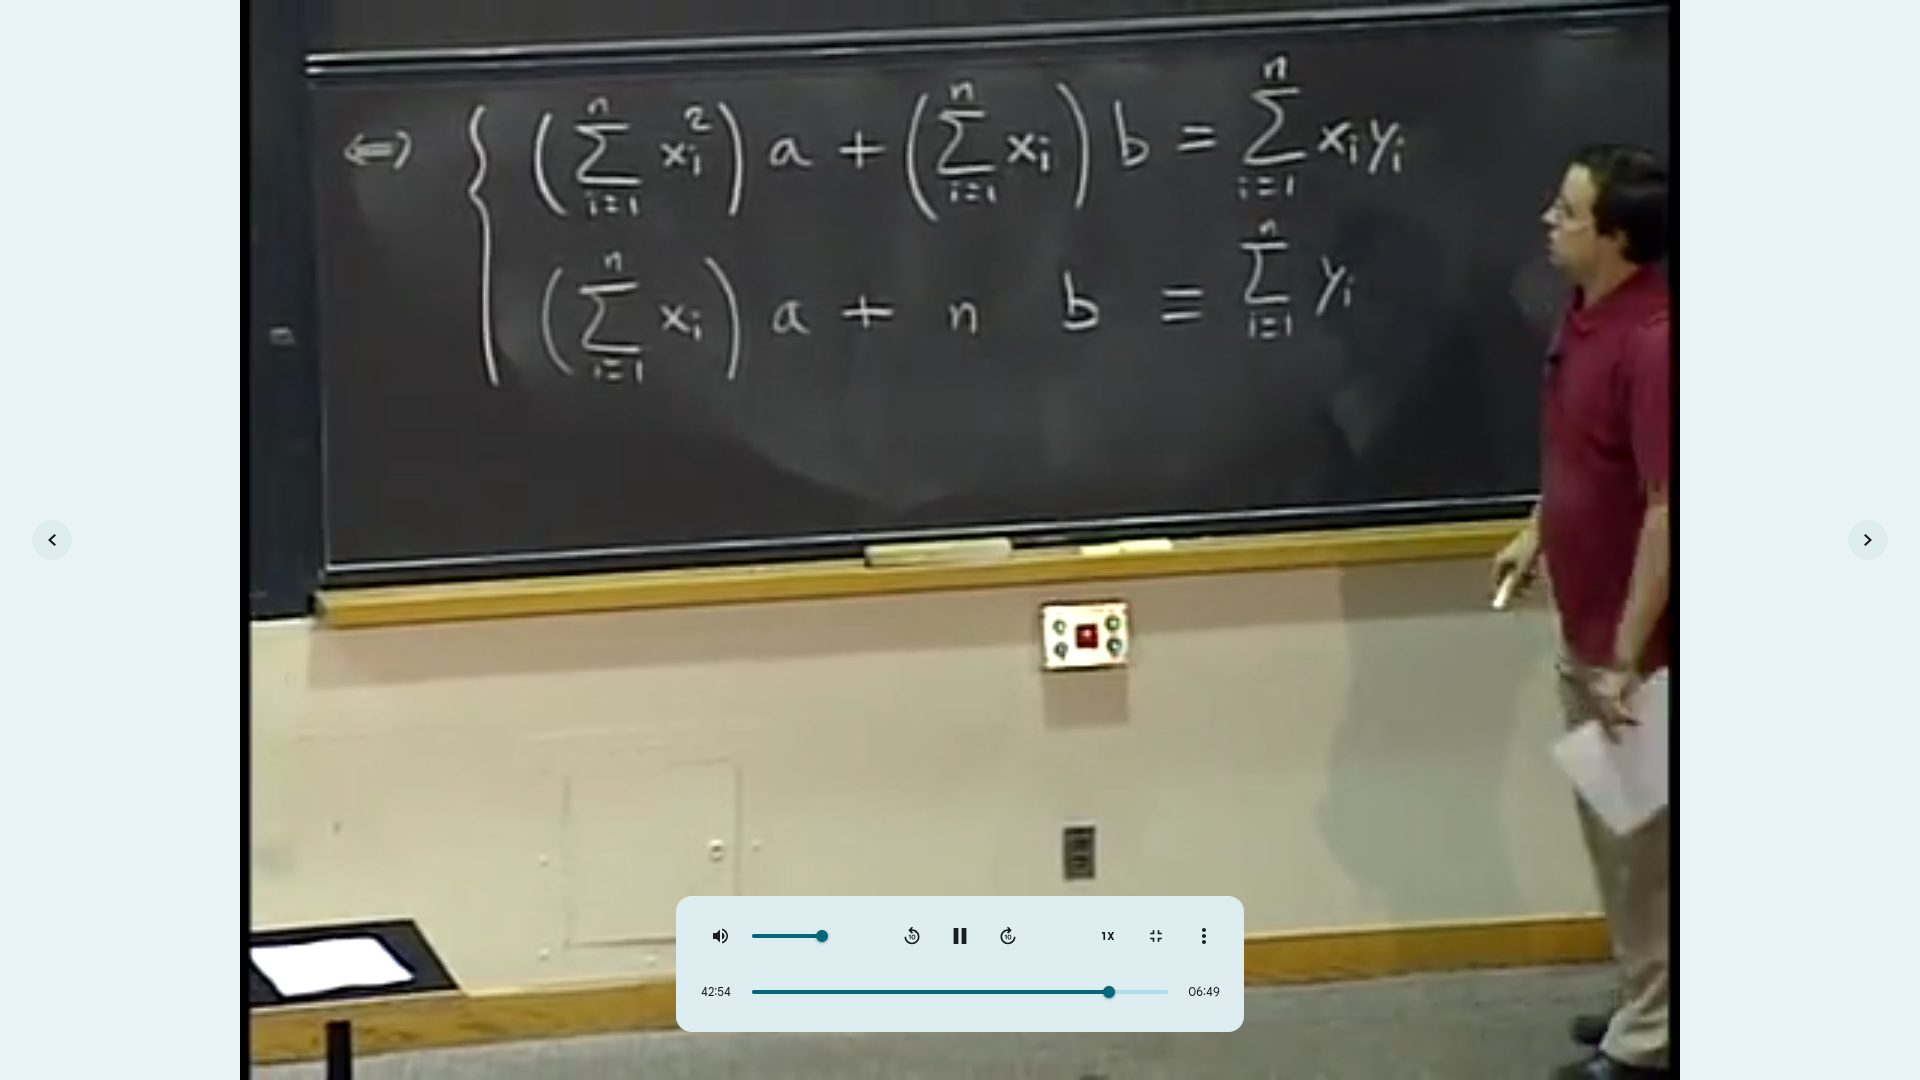 ⟺ { (∑_{i=1}^{n} x_i^2) a + (∑_{i=1}^{n} x_i) b = ∑_{i=1}^{n} x_i y_i
(∑_{i=1}^{n} x_i) a + n b = ∑_{i=1}^{n} y_i
10 10 1X
42:54 06:49